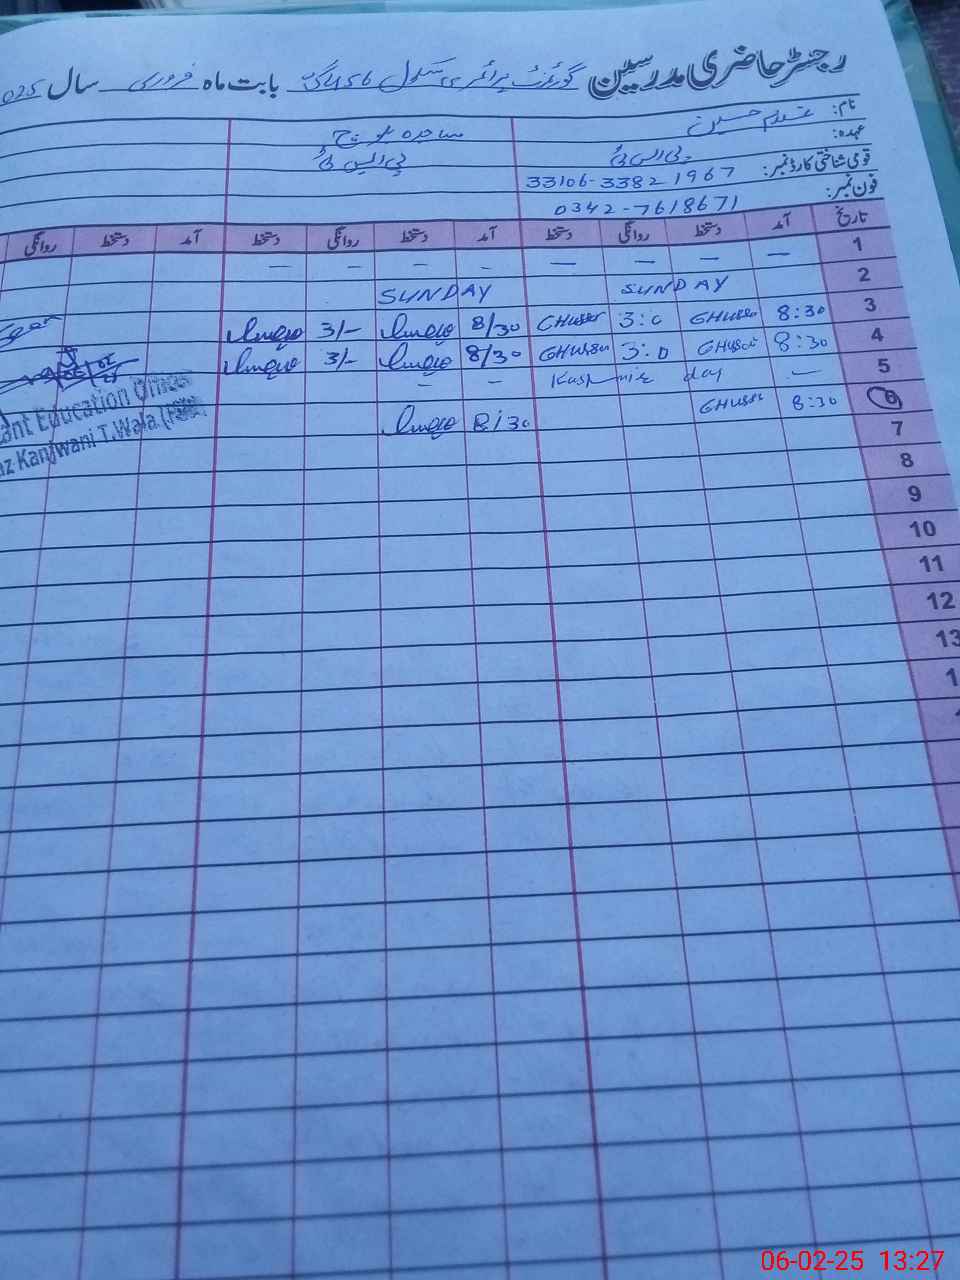 رجسٹر حاضری مدرسین گورنمنٹ پرائمری سکول 456 گ ب بابت ماہ فروری سال 025
نام: غلام حسین
عہدہ: پی ایس ٹی پی ایس ٹی
قومی شناختی کارڈ نمبر: 33106-33821967
فون نمبر: 0342-7618671
تاریخ آمد دستخط روانگی دستخط آمد دستخط روانگی دستخط آمد دستخط روانگی
1 — — — — — — — —
2 SUNDAY SUNDAY
3 8:30 GHussn 3:0 GHussn 8/30 3/-
4 8:30 GHussn 3:0 GHussn 8/30 3/-
5 — Kashmir day — —
6 8:30 GHussn 8:30
7
8
9
10
11
12
13
1
ant Education Officer
az Kanjwani T.Wala
06-02-25 13:27